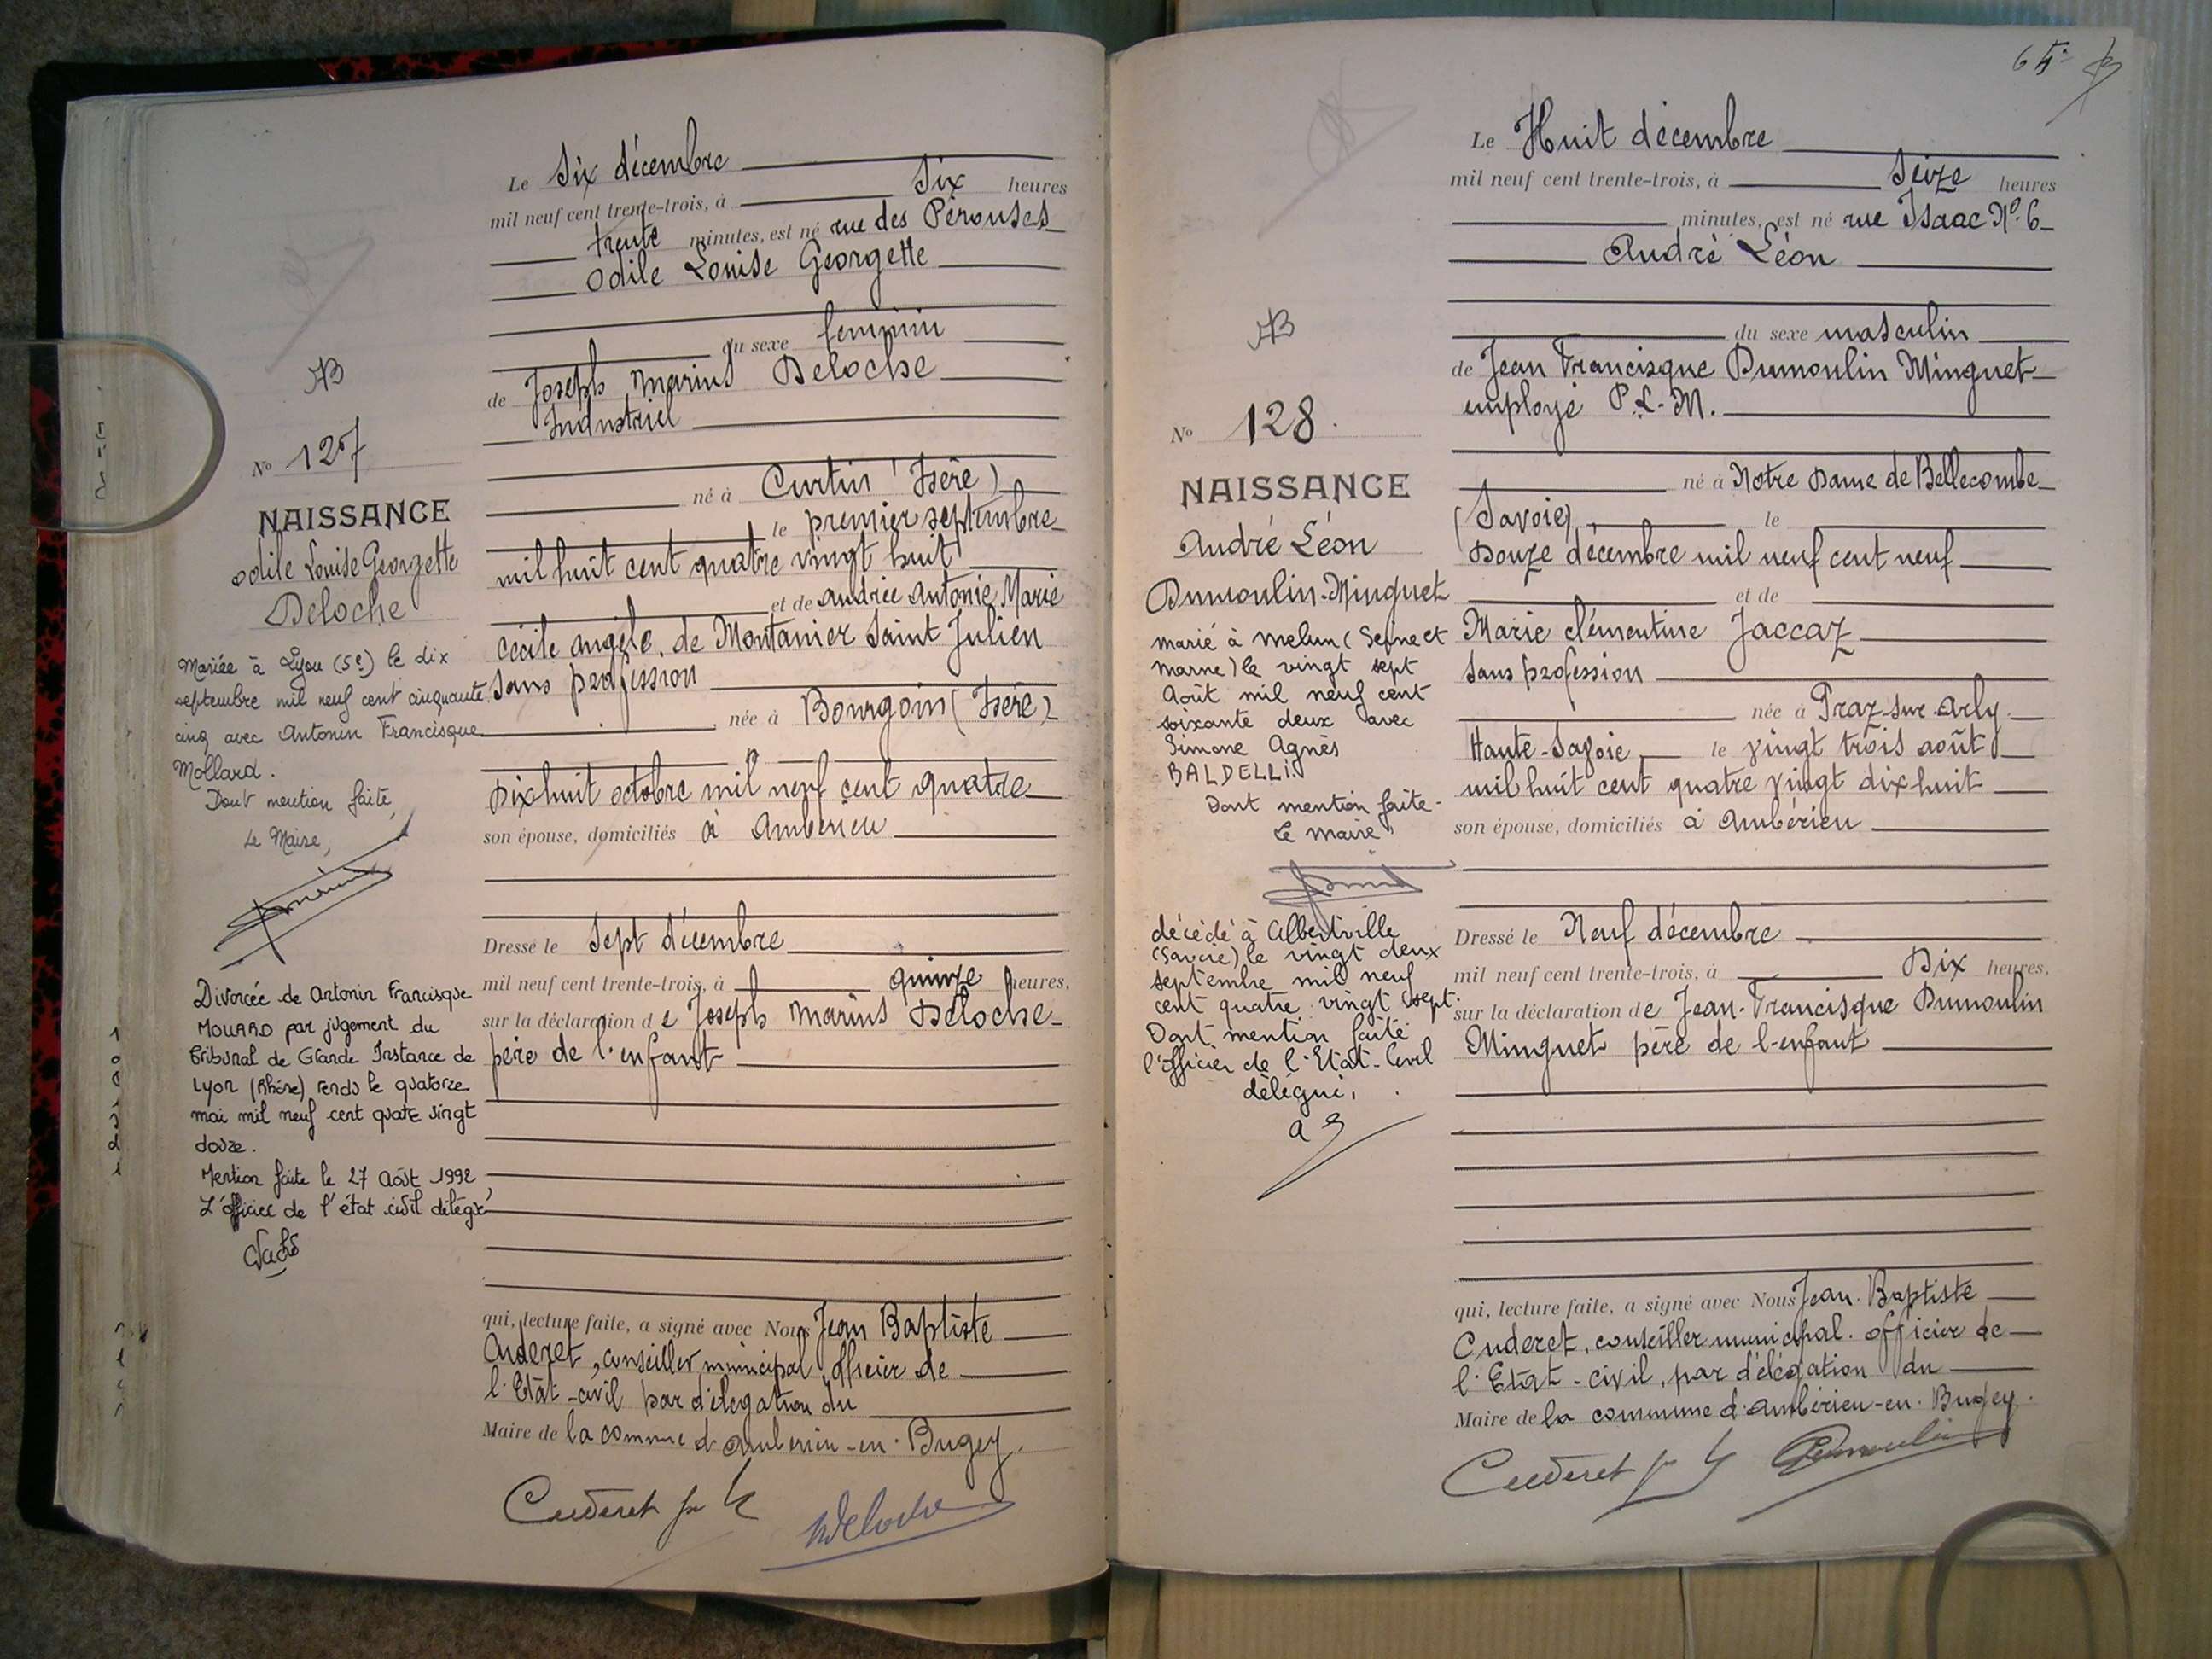 Le Six décembre
mil neuf cent trente-trois, à Six heures
trente minutes, est né rue des Pérouses
Odile Louise Georgette
du sexe feminin
de Joseph Marius Deloche
Industriel
né à Curtin (Isère)
le premier septembre
mil huit cent quatre vingt huit
et de Andrée Antonie Marie
Cécile Angèle de Montanier Saint Julien
sans profession
née à Bourgoin (Isère)
Dixhuit octobre mil neuf cent quatre
son épouse, domiciliés à Ambérieu
Dressé le Sept décembre
mil neuf cent trente-trois, à quinze heures,
sur la déclaration de Joseph Marius Deloche
père de l'enfant
qui, lecture faite, a signé avec Nous Jean Baptiste
Cuderet, conseiller municipal officier de
l'Etat-civil par délégation du
Maire de la commune d'Ambérieu-en-Bugey.
Cuderet
Deloche
AB
No 127
NAISSANCE
Odile Louise Georgette
Deloche
Mariée à Lyon (5e) le dix
septembre mil neuf cent cinquante
cinq avec Antonin Francisque
Mollard.
Dont mention faite,
Le Maire,
Divorcée de Antonin Francisque
MOLLARD par jugement du
Tribunal de Grande Instance de
Lyon (Rhône) rendu le quatorze
mai mil neuf cent quatre vingt
douze.
Mention faite le 27 Août 1992
L'officier de l'état civil délégué
65
Le Huit décembre
mil neuf cent trente-trois, à Seize heures
minutes, est né rue Isaac No. 6
André Léon
du sexe masculin
de Jean Francisque Dumoulin Minguet
employé P.L.M.
né à Notre Dame de Bellecombe
(Savoie) le
Douze décembre mil neuf cent neuf
et de
Marie clémentine Jaccaz
sans profession
née à Praz-sur-Arly
Haute-Savoie le vingt trois août
mil huit cent quatre vingt dix huit
son épouse, domiciliés à Ambérieu
Dressé le Neuf décembre
mil neuf cent trente-trois, à Dix heures,
sur la déclaration de Jean-Francisque Dumoulin
Minguet père de l'enfant
qui, lecture faite, a signé avec Nous Jean-Baptiste
Cuderet, conseiller municipal. officier de
l'Etat-civil, par délégation du
Maire de la commune d'Ambérieu-en-Bugey.
Cuderet
Dumoulin
AB
No 128.
NAISSANCE
André Léon
Dumoulin-Minguet
marié à Melun (Seine et
Marne) le vingt sept
Août mil neuf cent
soixante deux avec
Simone Agnès
BALDELLI.
Dont mention faite-
Le Maire
décédé à Albertville
(Savoie) le vingt deux
septembre mil neuf
cent quatre vingt sept.
Dont mention faite
l'officier de l'Etat-Civil
délégué,